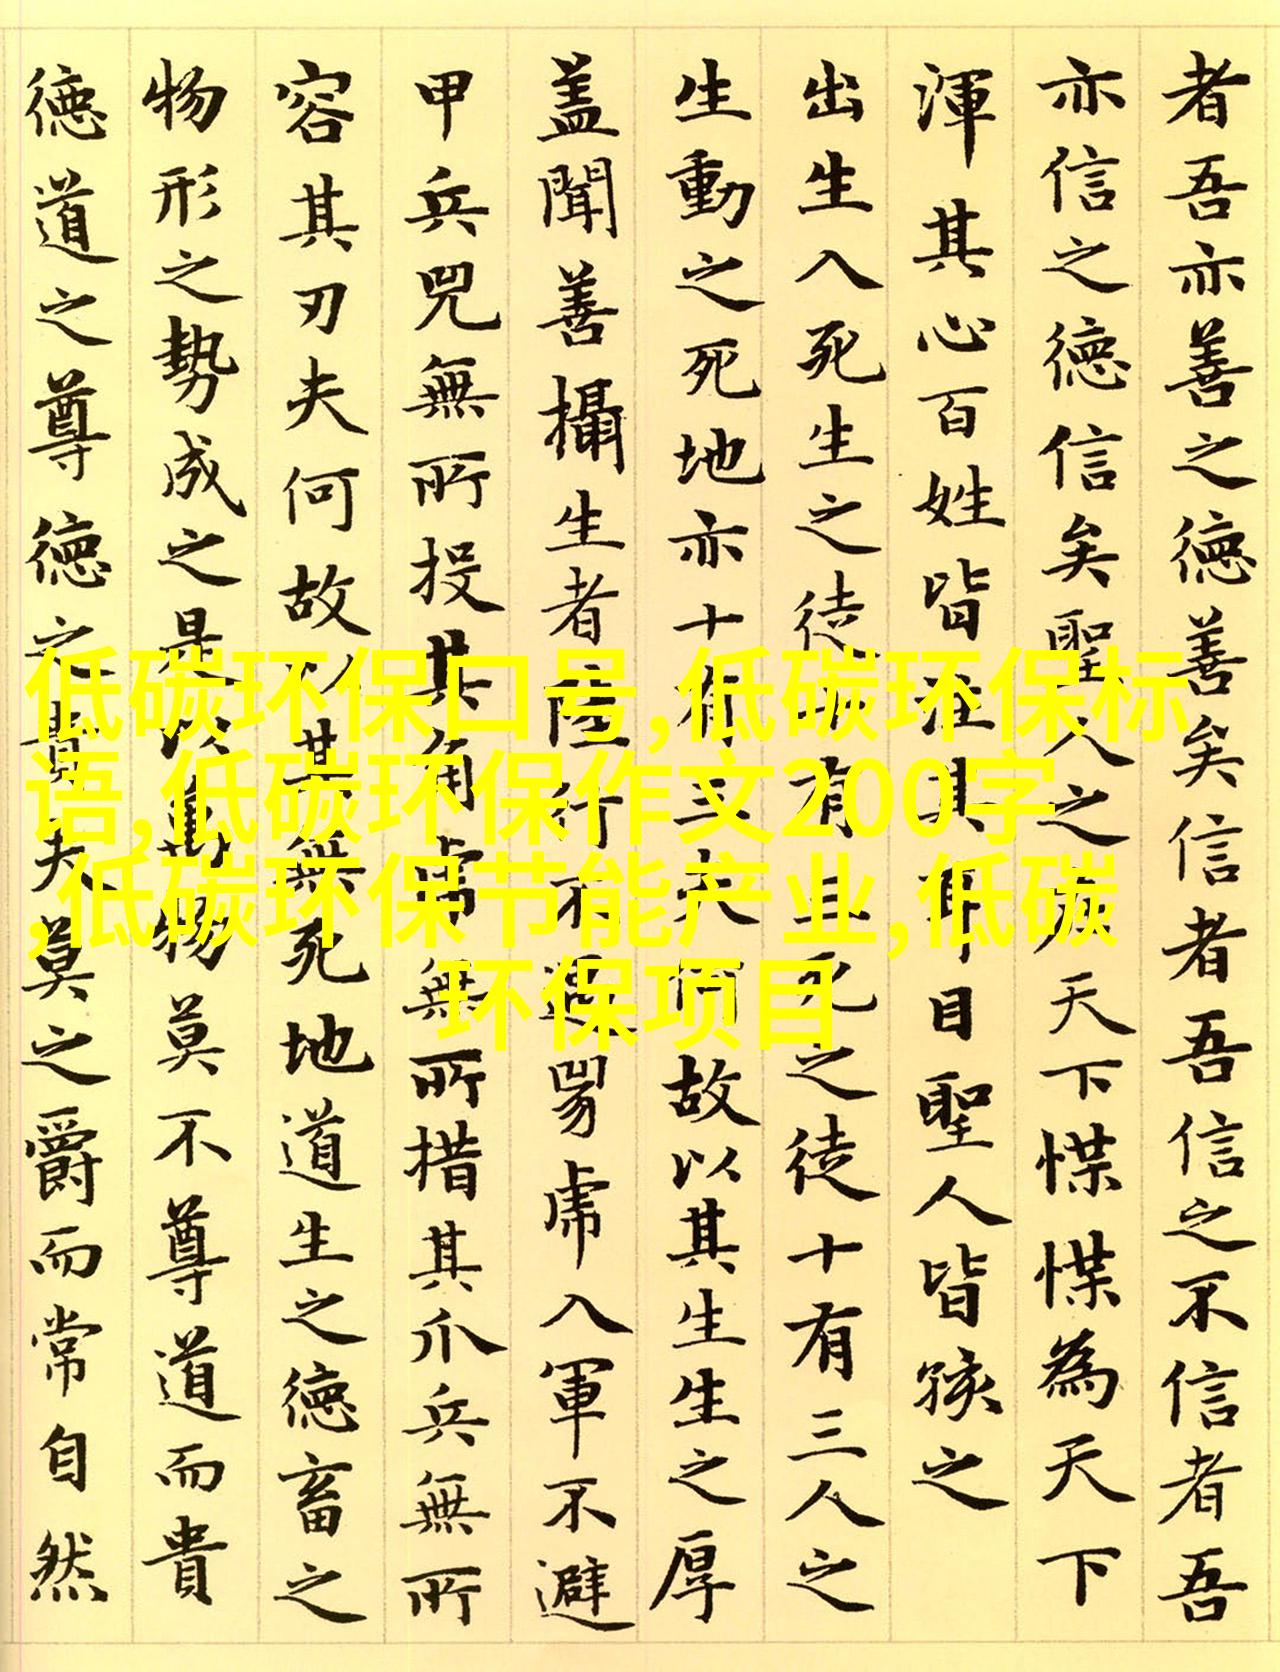 者吾亦善之德善矣信者吾信之不信者吾
亦信之德信矣聖人之在天下惵惵為天下
渾其心百姓皆注其耳目聖人皆孩之
出生入死生之徒十有三死之徒十有三人之
生動之死地亦十有三夫何故以其生生之厚
蓋聞善攝生者陸行不遇兕虎入軍不避
甲兵兕無所投其角虎無所措其爪兵無所
容其刃夫何故以其無死地道生之德畜之
物形之勢成之是以萬物莫不尊道而貴
德道之尊德之貴夫莫之爵而常自然
低碳环保口号,低碳环保标
语,低碳环保作文200字
,低碳环保节能产业,低碳
环保项目